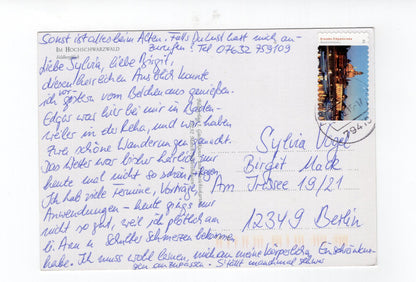 Sonst ist alles beim Alten. Falls Du Lust hast mich an-
zurufen! Tel 07632 759109
IM HOCHSCHWARZWALD
Liebe Sylvia, liebe Birgit,
diesen herrlichen Ausblick konnte
ich vorgestern vom Belchen aus genießen.
Edgar war hier bei mir in Baden-
weiler in der Reha, und wir haben
zwei schöne Wanderungen gemacht.
Das Wetter war bisher herrlich, nur
heute mal nicht so schön
Ich habe viele Termine, Vorträge,
Anwendungen - heute ging's mir
nicht so gut, weil ich plötzlich am
li. Arm u. Schulter Schmerzen bekommen
habe. Ich muss wohl lernen, mich an meine körperlichen Einschränkun-
gen anzupassen. Ist manchmal schwer
Sylvia Vogel
Birgit Mack
Am 19/21
12349 Berlin